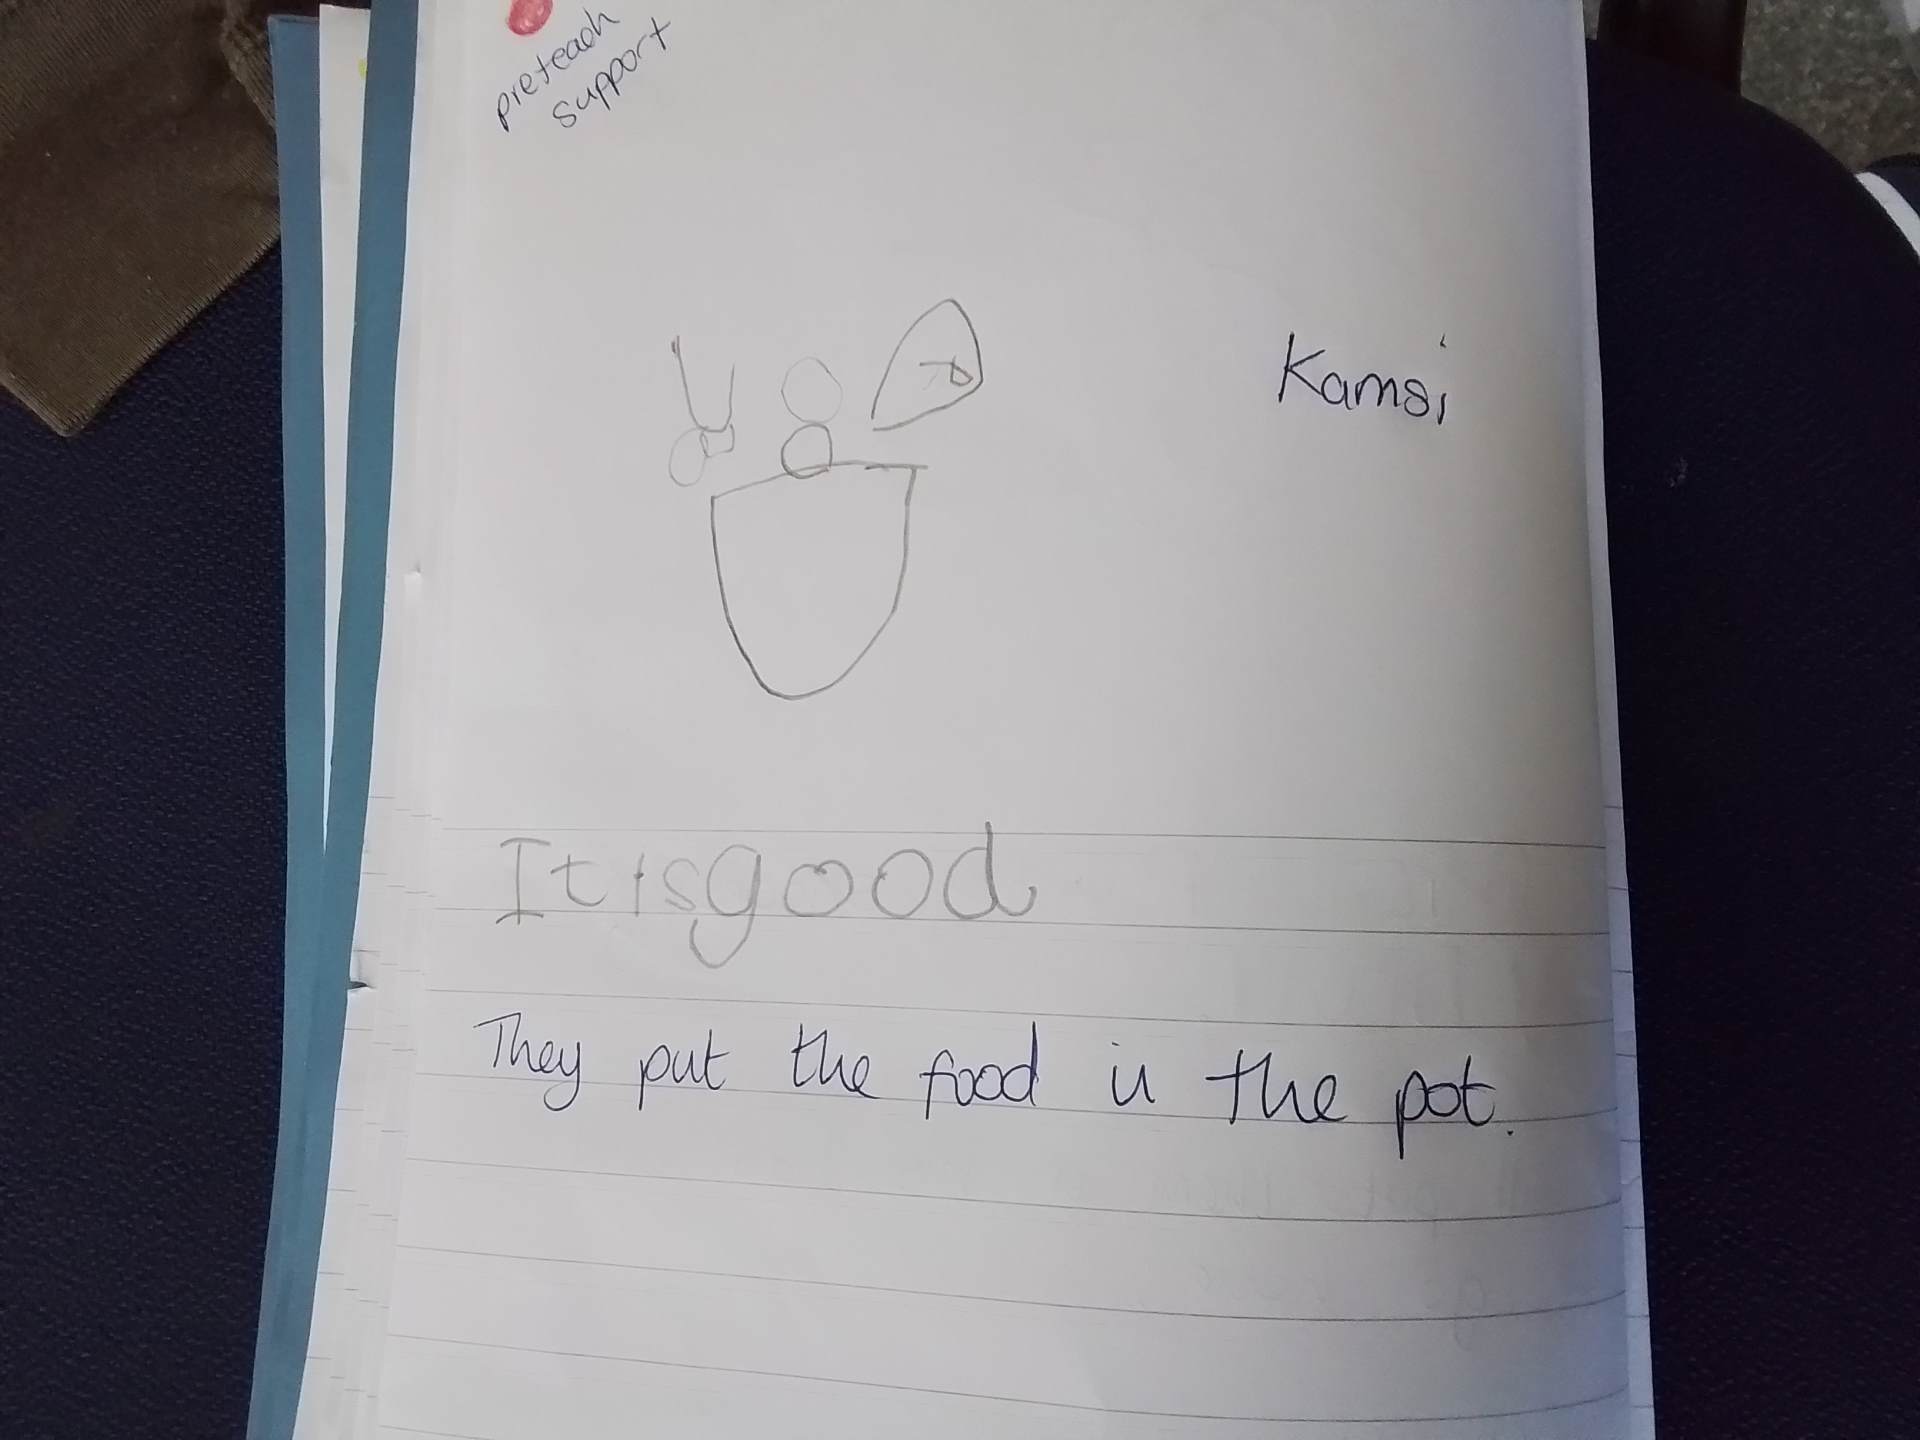 preteach
support
Kamsi
It is good
They put the food in the pot.